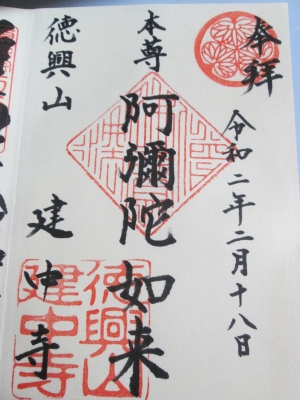 奉拝
令和二年二月十八日
本尊
阿彌陀如来
徳興山
建中寺
徳興山
建中寺